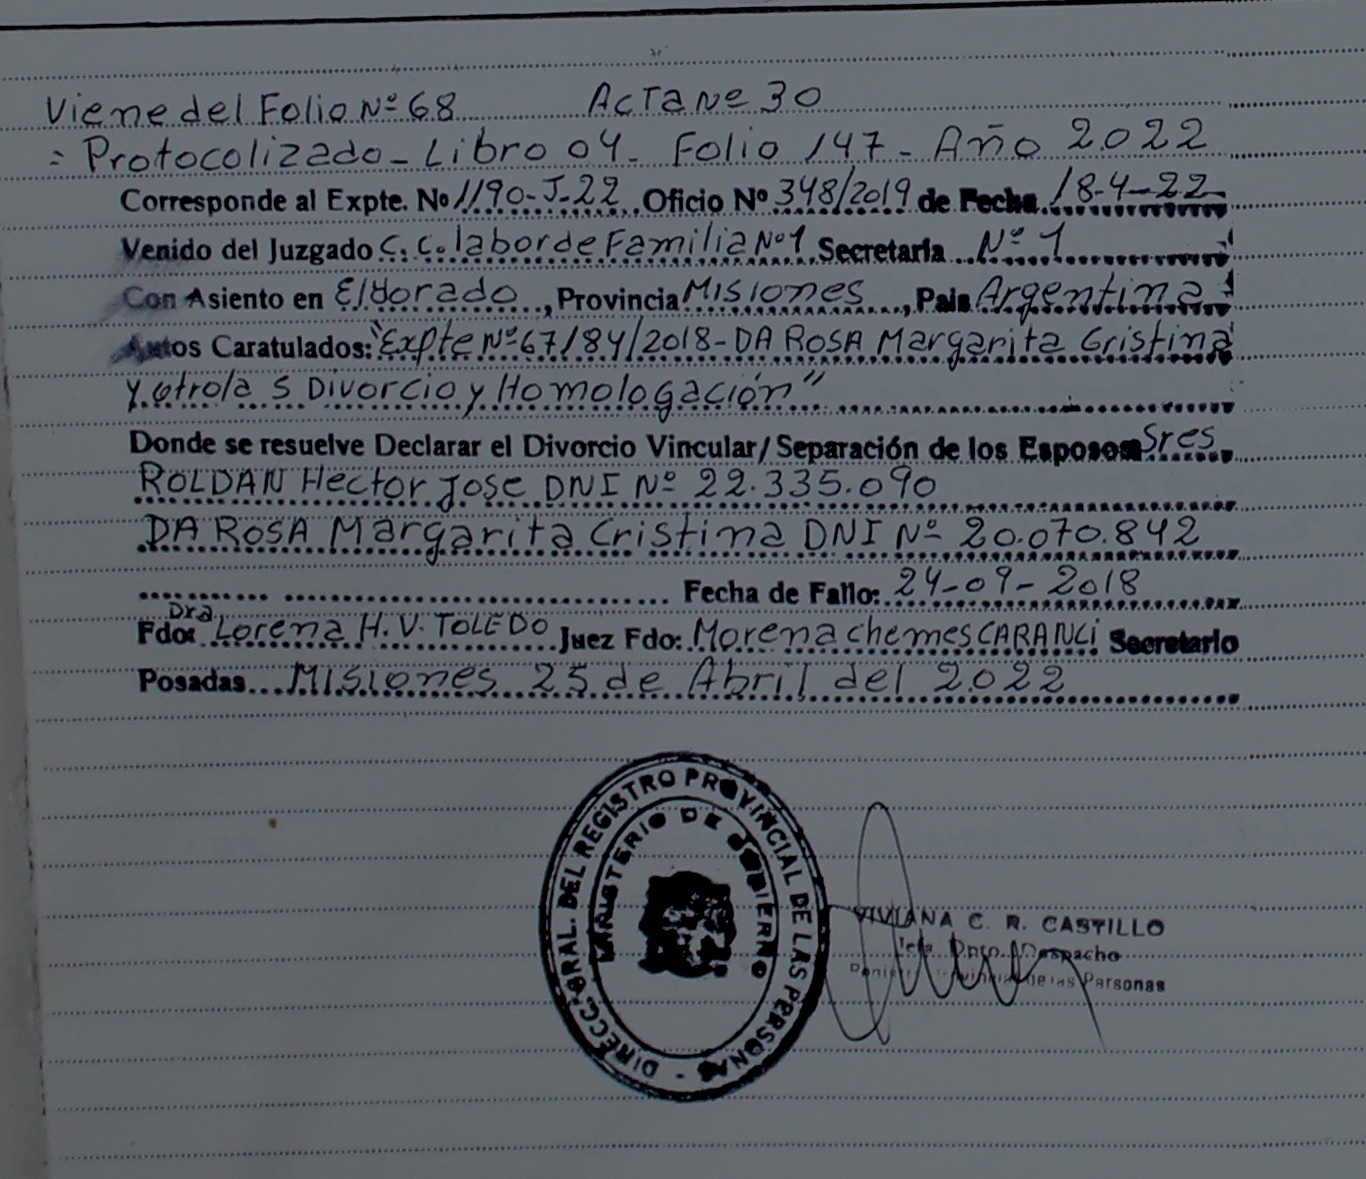 Viene del Folio Nº 68 Acta Nº 30
= Protocolizado - Libro 04 - Folio 147 - Año 2022
Corresponde al Expte. Nº 1190-J-22 Oficio Nº 348/2019 de Fecha 18-4-22
Venido del Juzgado C. C. labor de Familia Nº 1 Secretaría Nº 1
Con Asiento en Eldorado, Provincia Misiones, País Argentina
Autos Caratulados: "Expte Nº 67184/2018 - DA ROSA Margarita Cristina
y otro/a S Divorcio y Homologación"
Donde se resuelve Declarar el Divorcio Vincular/Separación de los Esposos Sres
ROLDAN Hector Jose DNI Nº 22.335.090
DA ROSA Margarita Cristina DNI Nº 20.070.842
Fecha de Fallo: 24-09-2018
Fdo: Dra Lorena H. V. TOLEDO Juez Fdo: Morena chemes CARANCI Secretario
Posadas Misiones 25 de Abril del 2022
DIRECC. GRAL. DEL REGISTRO PROVINCIAL DE LAS PERSONAS -
MINISTERIO DE GOBIERNO
VIVIANA C. R. CASTILLO
Jefa Dpto. Despacho
de las Personas